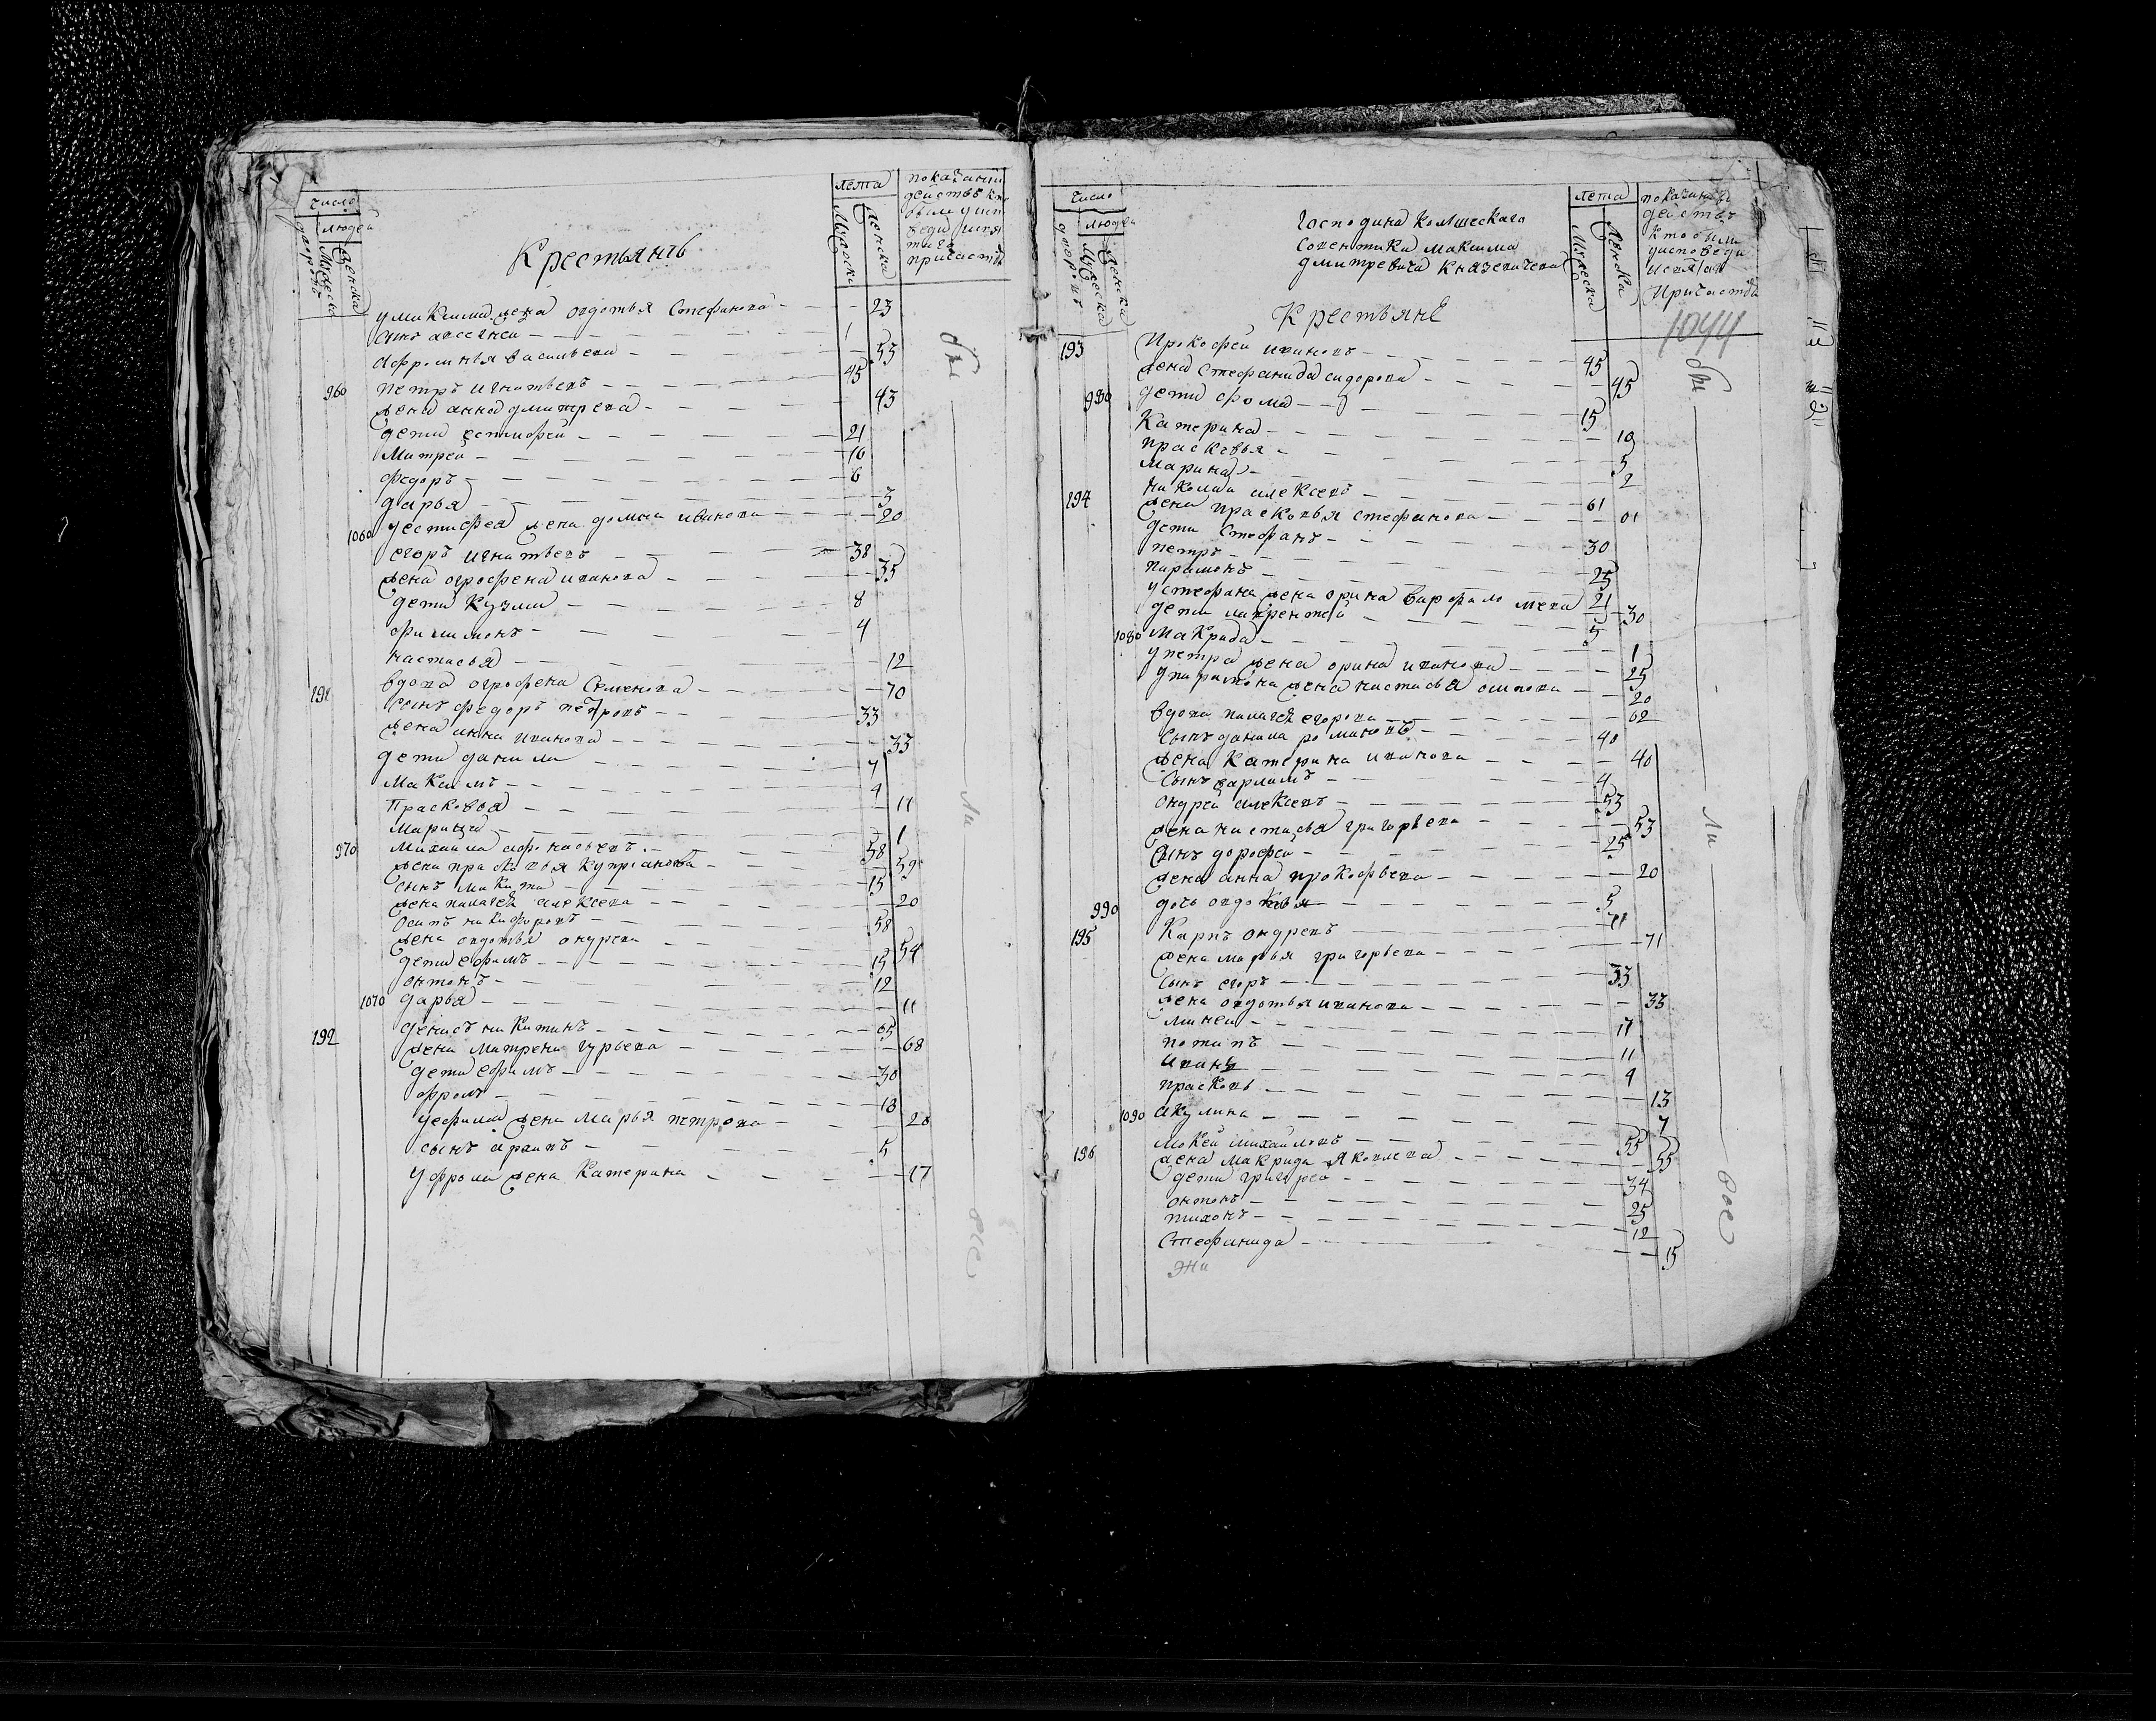 число
людей
дворовъ
Мужеска
женска
Крестьянъ
лета
Мужеска
женска
показании
действъ кто
были у исп
веди и свя
таго
причастия
у максима жена овдотья Стефанова — 23
сынъ алексеи — 1
Афросинья васильева — 55
960 петръ игнатьевъ — 45
жена анна дмитрева — 43
дети евтифеи — 21
Митреи — 10
федоръ — 6
дарья — 3
1060 у естифея жена домна иванова — 20
егоръ игнатьевъ — 38
жена огрофена иванова — 35
дети Кузма — 8
филимонъ — 4
настасья — 12
191 вдова огрофена Семенова — 70
сынъ федоръ петровъ — 33
жена анна иванова — 33
дети данила — 7
Максимъ — 4
Прасковья — 11
Марина — 1
970 михаила афонасьевъ — 58
жена прасковья Куприанова — 59
сынъ микита — 15
жена палагея алексева — 20
Осипъ никифоровъ — 58
жена овдотья онурева — 54
дети ефимъ — 15
онтонъ — 12
1070 дарья — 11
192 денисъ никитинъ — 65
жена матрена гурьева — 68
дети ефимъ — 30
фролъ — 18
у ефима жена Марья петрова — 28
сынъ архипъ — 5
у фрола жена Катерина — 17
бы
ли
вос
число
людей
дворовъ
Мужеска
женска
Господина Колежскаго
Советника максима
дмитревича Князевичева
лета
Мужеска
женска
показании
действъ
кто были
у исповеди
и святаго
Причастия
1044
Крестьяне
193 Прокофеи ивановъ — 45
жена Стефанида сидорова — 45
980 дети фома — 15
Катерина — 10
прасковья — 5
марина — 2
194 николаи алексевъ — 61
жена прасковья стефанова — 61
дети Стефанъ — 30
петръ — 25
парамонъ — 21
у стефана жена орина варфоломева — 30
дети лаврентеи — 5
1080 макрида — 1
у петра жена орина иванова — 25
у парамона жена настасья осипова — 20
вдова палагея егорова — 62
сынъ данила романовъ — 40
жена Катерина иванова — 40
Сынъ варламъ — 4
ондреи алексевъ — 53
жена настасья григорьева — 53
Сынъ дорофеи — 25
жена анна прокофьева — 20
990 дочь овдотья — 5
195 Карпъ ондревъ — 71
жена марья григорьева — 71
Сынъ егоръ — 33
жена овдотья иванова — 33
минеи — 17
потапъ — 11
иванъ — 9
прасковь — 13
1090 акулина — 7
196 мокеи михаиловъ — 55
жена макрида яковлева — 55
дети григореи — 34
онтонъ — 25
тихонъ — 12
Стефанида — 15
бы
ли
вос